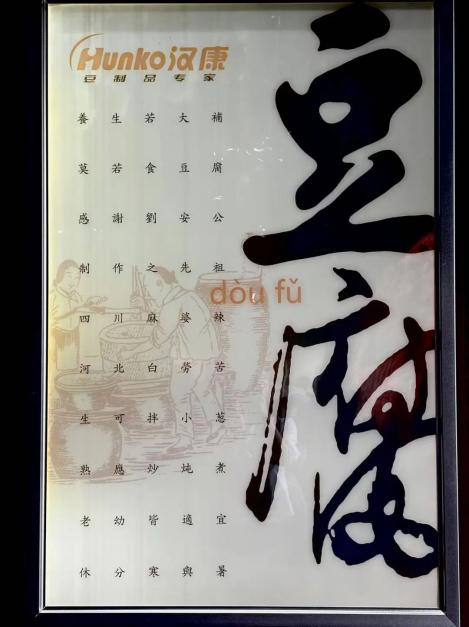 Hunko汉康
豆制品专家
豆腐
dòu fǔ
養生若大補
莫若食豆腐
感謝劉安公
制作之先祖
四川麻婆辣
河北白勞苦
生可拌小葱
熟應炒炖煮
老幼皆適宜
休分寒與暑